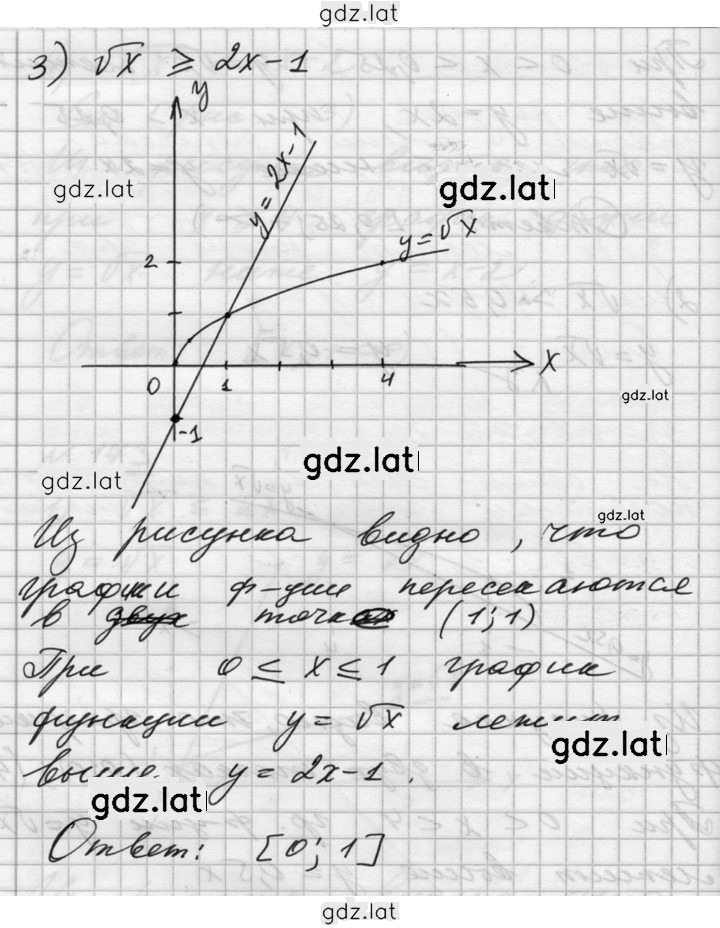 gdz.lat
3) √x ≥ 2x-1
y
y=2x-1
gdz.lat
gdz.lat
y=√x
2
0
1
4
x
gdz.lat
-1
gdz.lat
gdz.lat
gdz.lat
Из рисунка видно, что
графики ф-ции пересекаются
в двух точках (1;1)
При 0 ≤ x ≤ 1 график
функции y = √x лежит
gdz.lat
выше y = 2x-1.
gdz.lat
Ответ: [0; 1]
gdz.lat